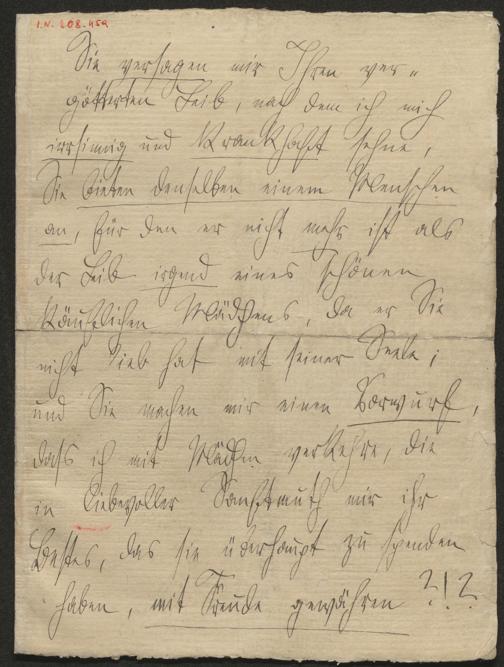 I.N. 208.459
Sie versagen mir Ihren ver-
götterten Leib, nach dem ich mich
irrsinnig und krankhaft sehne,
Sie bieten denselben einem Menschen
an, für den er nicht mehr ist als
der Leib irgend eines schönen
käuflichen Mädchens, da er Sie
nicht lieb hat mit seiner Seele;
und Sie machen mir einen Vorwurf,
dass ich mit Mädchen verkehre, die
in liebevoller Sanftmuth mir ihr
Bestes, das sie überhaupt zu spenden
haben, mit Freude gewähren?!?